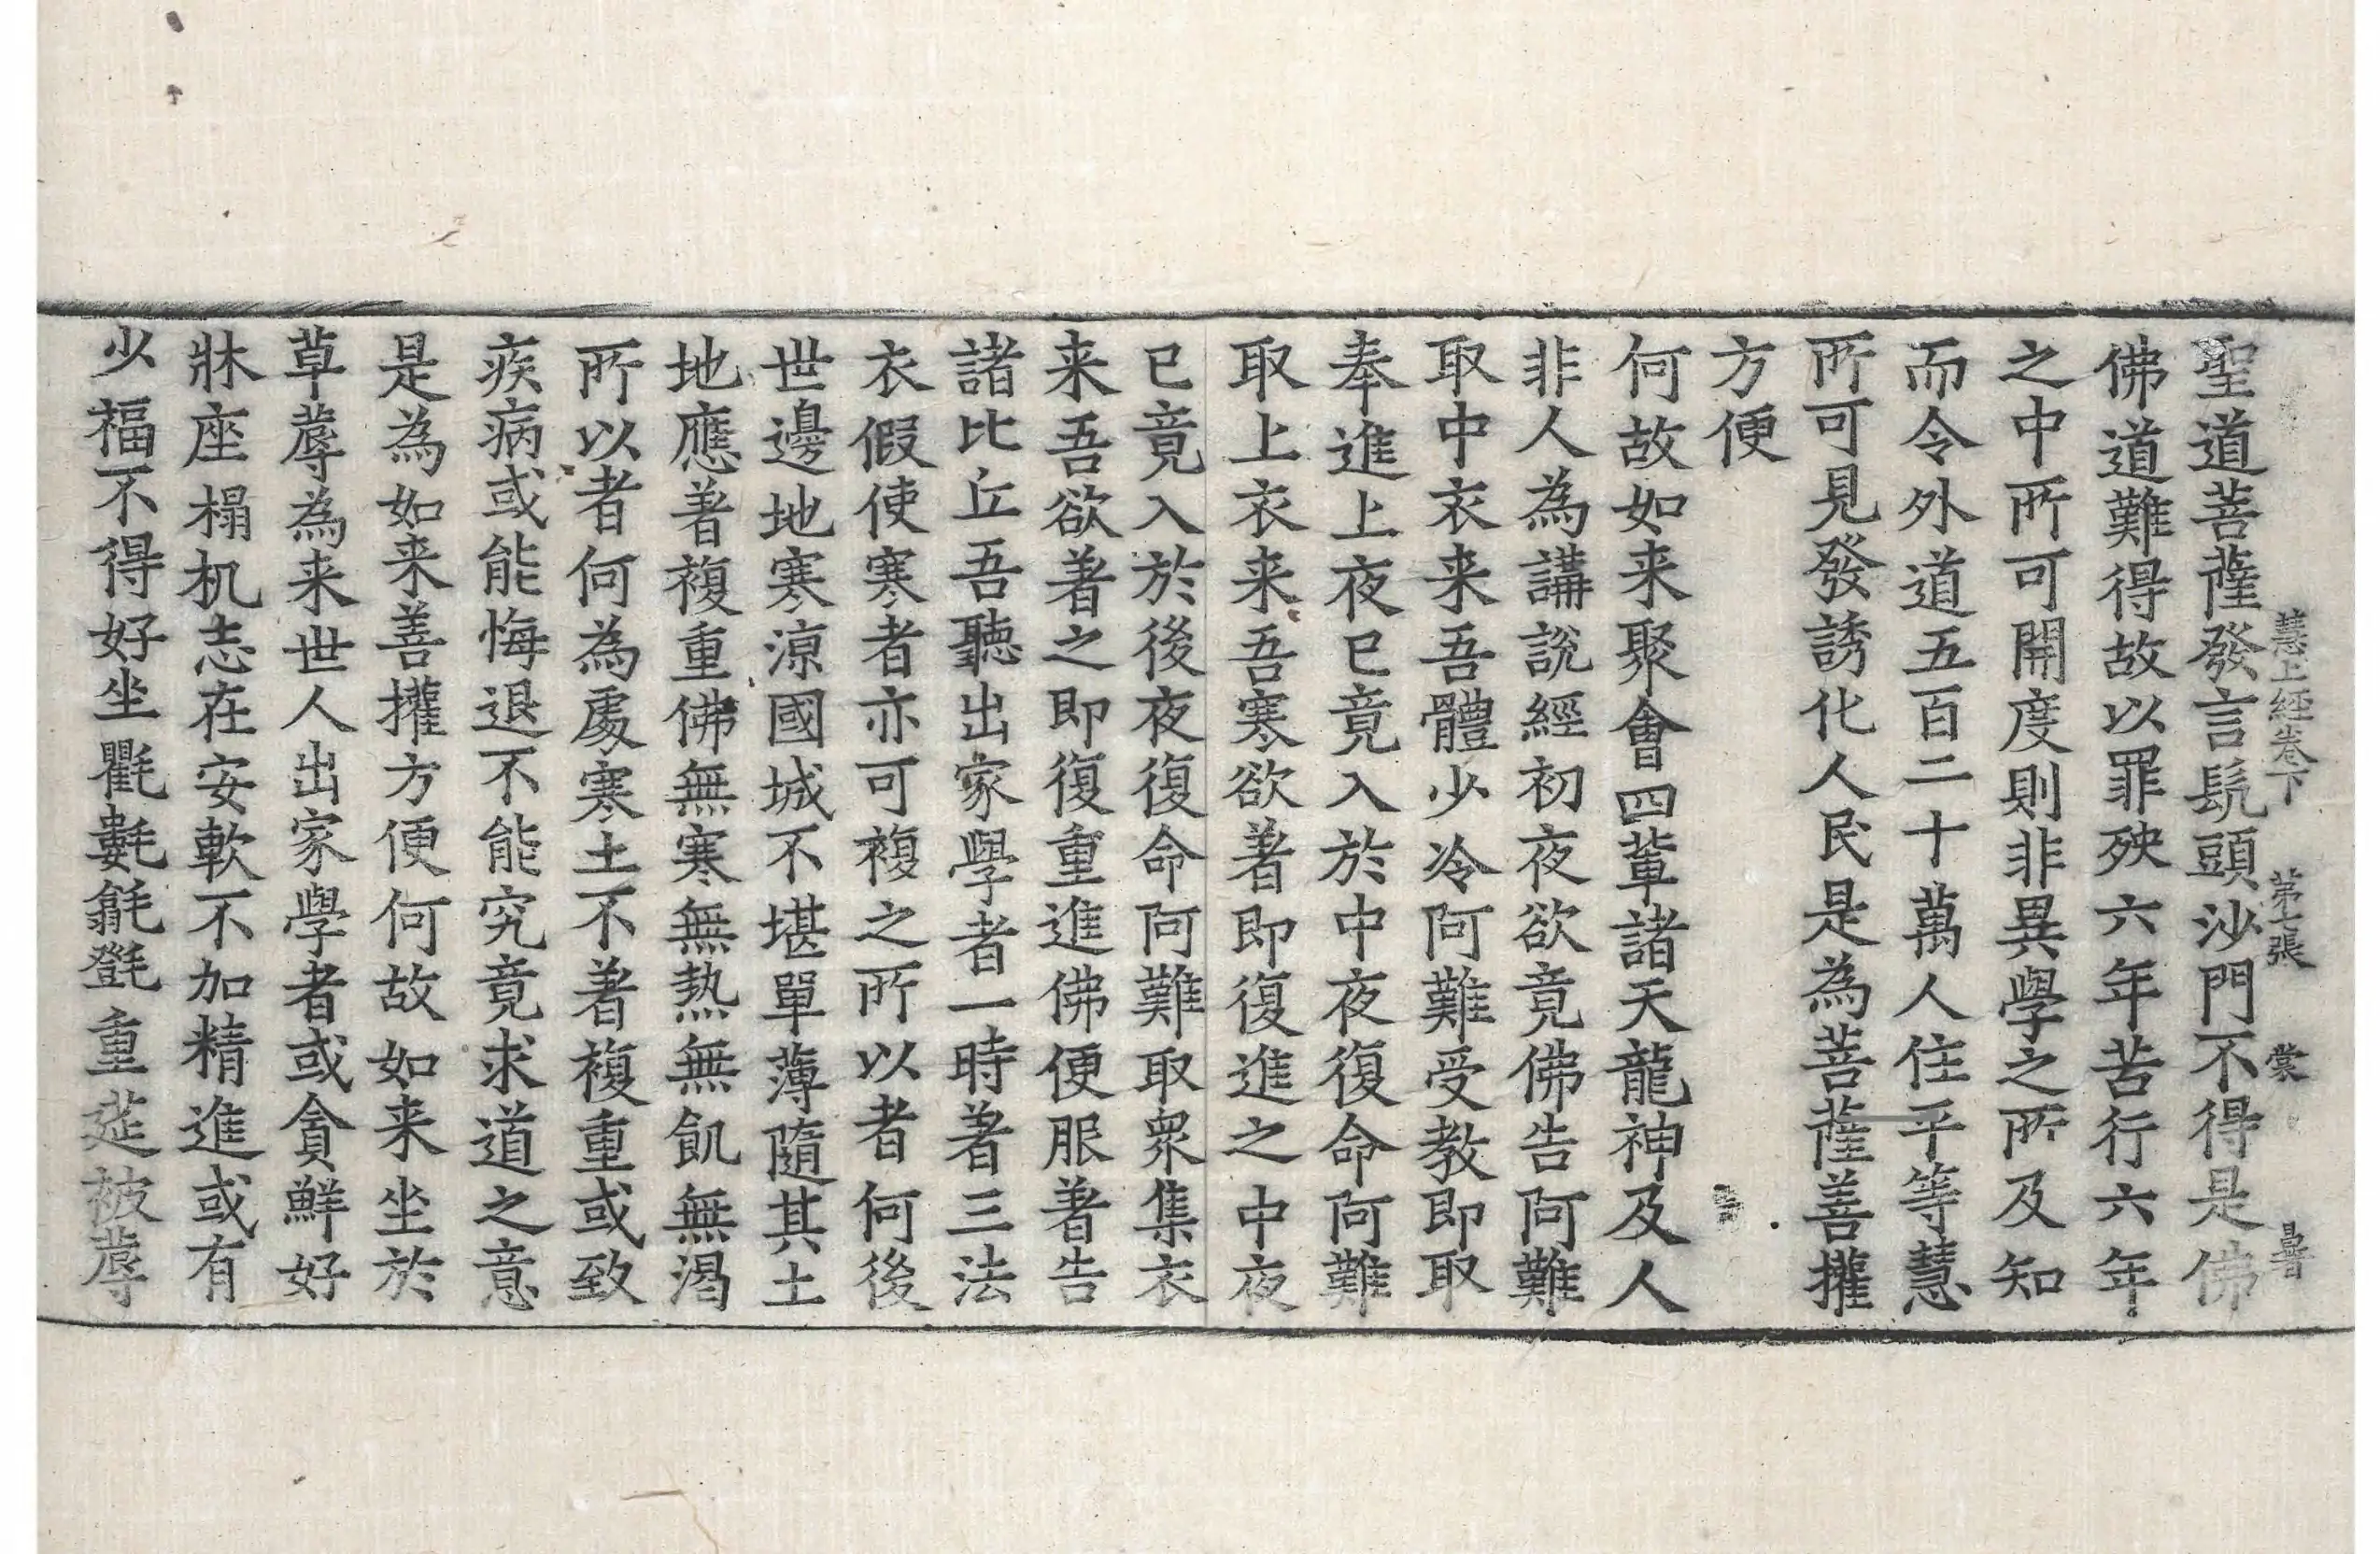 慧上經卷下 第七張 裳
聖道菩薩發言髡頭沙門不得是佛
佛道難得故以罪殃六年苦行六年
之中所可開度則非異學之所及知
而令外道五百二十萬人住平等慧
所可見發誘化人民是為菩薩善攉
方便
何故如来聚會四輩諸天龍神及人
非人為講說經初夜欲竟佛告阿難
取中衣来吾體少冷阿難受教即取
奉進上夜已竟入於中夜復命阿難
取上衣来吾寒欲著即復進之中夜
已竟入於後夜復命阿難取眾集衣
来吾欲著之即復重進佛便服著告
諸比丘吾聽出家學者一時著三法
衣假使寒者亦可複之所以者何後
世邊地寒涼國城不堪單薄隨其土
地應著複重佛無寒無熱無飢無渴
所以者何為處寒土不著複重或致
疾病或能悔退不能究竟求道之意
是為如来善攉方便何故如来坐於
草蓐為来世人出家學者或貪鮮好
牀座榻机志在安軟不加精進或有
少福不得好坐氍𣰽㲣㲪重莚被蓐